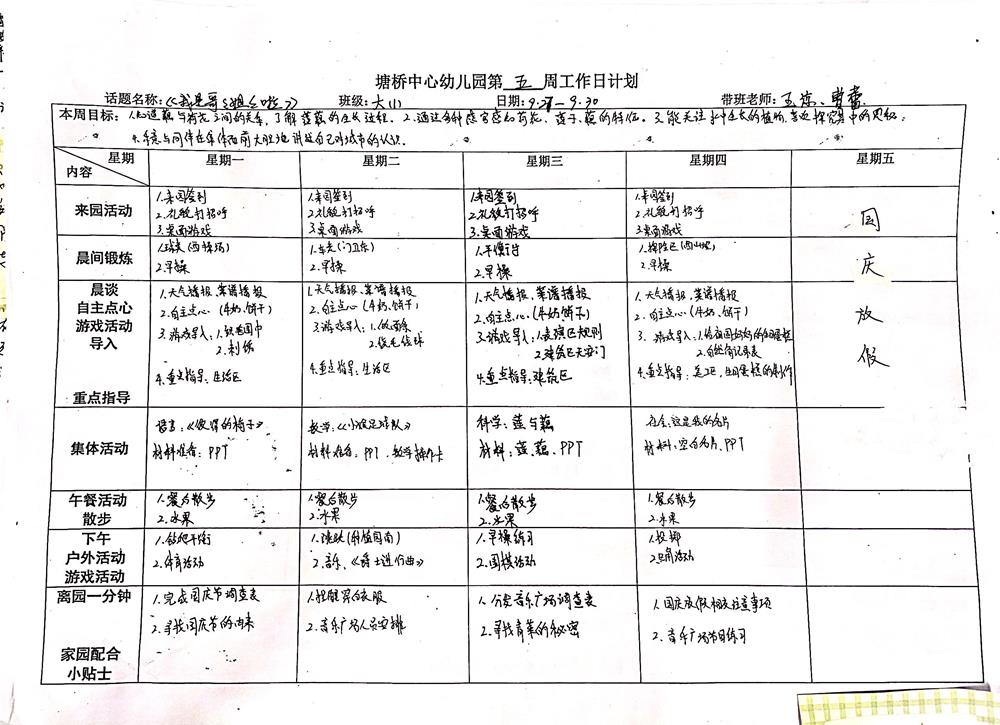 塘桥中心幼儿园第 五 周工作日计划
话题名称：《我是哥哥姐姐啦》 班级：大(1) 日期：9.27—9.30 带班老师：
本周目标：1.知道藕与荷花之间的关系，了解莲藕的生长过程。2.通过多种感官感知荷花、莲子、藕的特征。3.能关注水中生长的植物，喜欢探究其中的奥秘。
4.乐意与同伴在集体面前大胆地讲述自己对城市的认识。
星期 内容 星期一 星期二 星期三 星期四 星期五
来园活动
1.来园签到
2.礼貌打招呼
3.桌面游戏
1.来园签到
2.礼貌打招呼
3.桌面游戏
1.来园签到
2.礼貌打招呼
3.桌面游戏
1.来园签到
2.礼貌打招呼
3.桌面游戏
国庆放假
晨间锻炼
2.早操
2.早操
1.平衡
2.早操
2.早操
晨谈
自主点心
游戏活动
导入
重点指导
1.天气播报、菜谱播报
2.自主点心（牛奶、饼干）
3.游戏导入：1.
2.
4.重点指导：生活区
1.天气播报、菜谱播报
2.自主点心（牛奶、饼干）
3.游戏导入：1.
2.
4.重点指导：生活区
1.天气播报、菜谱播报
2.自主点心（牛奶饼干）
3.游戏导入：1.表演区规则
2.建筑区天安门
4.重点指导：建筑区
1.天气播报、菜谱播报
2.自主点心（牛奶、饼干）
3.游戏导入：1.给祖国妈妈的生日蛋糕
2.自然角记录表
4.重点指导：美工区，生日蛋糕的制作
集体活动
语言：《彼得的椅子》
材料准备：PPT
数学：《小小足球队》
材料准备：PPT、数学操作卡
科学：莲与藕
材料：莲、藕、PPT
社会：这是我的名片
材料：空白名片、PPT
午餐活动
散步
1.餐后散步
2.水果
1.餐后散步
2.水果
1.餐后散步
2.水果
1.餐后散步
2.水果
下午
户外活动
游戏活动
1.钻爬平衡
2.体育活动
2.音乐：《爵士进行曲》
1.早操练习
2.围棋活动
1.投掷
2.区角活动
离园一分钟
家园配合
小贴士
1.完成国庆节调查表
2.寻找国庆节的由来
2.音乐广场人员安排
1.分类音乐广场调查表
2.寻找青菜的秘密
1.国庆放假相关注意事项
2.音乐广场节目练习